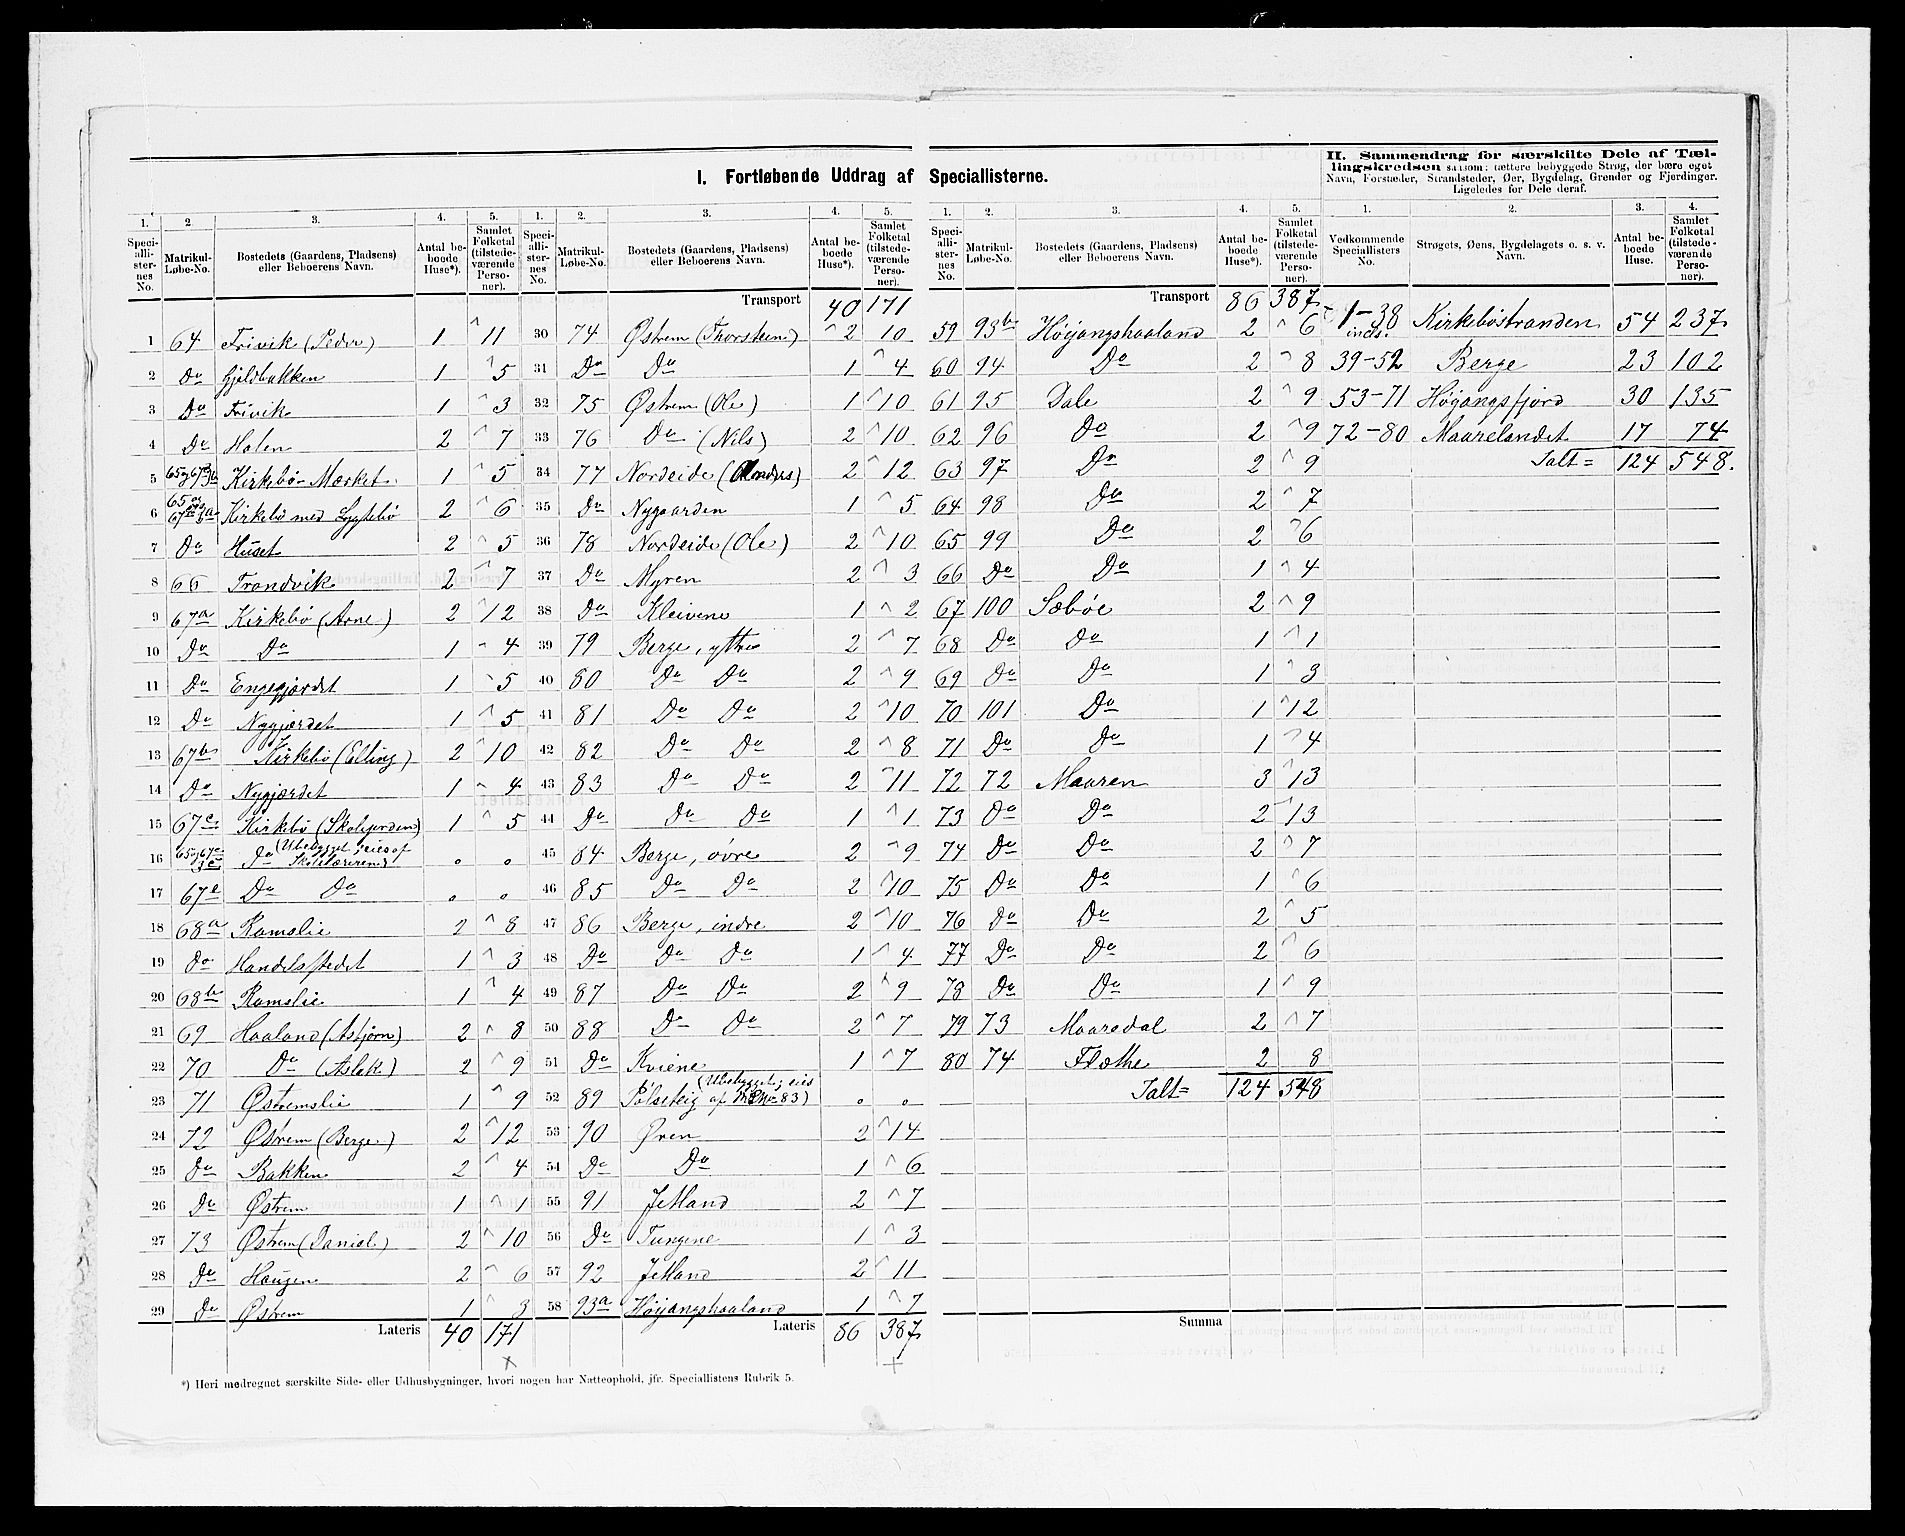 I. Fortløbende Uddrag af Speciallisterne.
II. Sammendrag for særskilte Dele af Tæl-
lingskredsen saasom: tættere bebyggede Strøg, der bære eget
Navn, Forstæder, Strandsteder, Øer, Bygdelag, Grender og Fjerdinger.
Ligeledes for Dele deraf.
1. 2. 3. 4. 5.
Speci-alli-ster-nes No. Matrikul-Løbe-No. Bostedets (Gaardens, Pladsens) eller Beboerens Navn. Antal be-boede Huse*). Samlet Folketal (tilstede-værende Perso-ner).
1 64 Frivik (Peder) 1 11
2 Do Gjeldbakken 1 5
3 Do Frivik 1 3
4 Do Holen 2 7
5 Kirkebø-Mærket 1 5
6 Kirkebø med 2 6
7 Do Huset 2 5
8 66 Trondvik 2 7
9 67a Kirkebø (Arne) 2 12
10 Do Do 1 4
11 Do Engegjærdet 1 5
12 Do Nygjærdet 1 5
13 67b Kirkebø (Elling) 2 10
14 Do Nygjærdet 1 4
15 67c Kirkebø (Skolejorden) 1 5
16 Do (Ubebygget, eies af Skolelæreren) 0 0
17 67e Do Do 0 0
18 68a Ramslie 2 8
19 Do Handelsstedet 1 3
20 68b Ramslie 1 4
21 69 Haaland (Asbjørn) 2 8
22 70 Do (Aslak) 2 9
23 71 Østremslie 1 9
24 72 Østrem (Berge) 2 12
25 Do Bakken 2 4
26 Do Østrem 1 1
27 73 Østrem (Daniel) 2 10
28 Do Haugen 2 6
29 Do Østrem 1 3
Lateris 40 171
1. 2. 3. 4. 5.
Speci-alli-ster-nes No. Matrikul-Løbe-No. Bostedets (Gaardens, Pladsens) eller Beboerens Navn. Antal be-boede Huse*). Samlet Folketal (tilstede-værende Perso-ner).
Transport 40 171
30 74 Østrem (Thorsteen) 2 10
31 Do Do 1 4
32 75 Østrem (Ole) 1 10
33 76 Do (Nils) 2 10
34 77 Nordeide (Anders) 2 12
35 Do Nygaarden 1 5
36 78 Nordeide (Ole) 2 10
37 Do Myren 2 3
38 Do Kleivene 1 2
39 79 Berge, yttre 2 7
40 80 Do Do 2 9
41 81 Do Do 2 10
42 82 Do Do 2 8
43 83 Do Do 2 11
44 Do Do Do 1 1
45 84 Berge, øvre 2 9
46 85 Do Do 2 10
47 86 Berge, indre 2 10
48 Do Do Do 1 4
49 87 Do Do 2 9
50 88 Do Do 2 7
51 Do Kviene 1 7
52 89 Pølseteig (Ubebygget; eies af 83) 0 0
53 90 Øren 2 14
54 Do Do 1 6
55 91 Jetland 2 7
56 Do Tungene 1 3
57 92 Jetland 2 11
58 93a Høyangshaaland 1 7
Lateris 86 387
1. 2. 3. 4. 5.
Speci-alli-ster-nes No. Matrikul-Løbe-No. Bostedets (Gaardens, Pladsens) eller Beboerens Navn. Antal be-boede Huse*). Samlet Folketal (tilstede-værende Perso-ner).
Transport 86 387
59 93b Høyangshaaland 2 6
60 94 Do 2 8
61 95 Dale 2 9
62 96 Do 2 9
63 97 Do 2 9
64 98 Do 2 7
65 99 Do 2 6
66 Do Do 1 4
67 100 Sæbøe 2 9
68 Do Do 1 1
69 Do Do 1 3
70 101 Do 1 12
71 Do Do 1 4
72 72 Maaren 3 13
73 Do Do 2 13
74 Do Do 2 7
75 Do Do 1 6
76 Do Do 2 5
77 Do Do 2 6
78 Do Do 1 9
79 73 Maaredal 2 7
80 74 Flæthe 2 8
Ialt= 124 548
Summa
1. 2. 3. 4.
Vedkommende Speciallisters No. Strøgets, Øens, Bygdelagets o. s. v. Navn. Antal be-boede Huse. Samlet Folketal (tilstede-værende Perso-ner).
1-38 incls. Kirkebøstranden 54 237
39-52 Berge 23 102
53-71 Høyangsfjord 30 135
72-80 Maarelandet 17 74
Ialt= 124 548.
*) Heri medregnet særskilte Side- eller Udhusbygninger, hvori nogen har Natteophold, jfr. Speciallistens Rubrik 5.